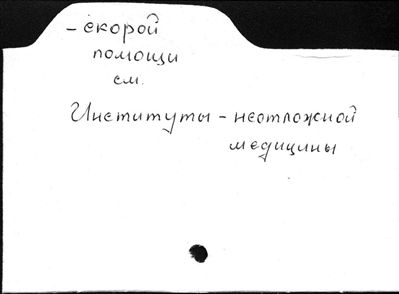 - скорой
помощи
см.
Институты - неотложной
медицины